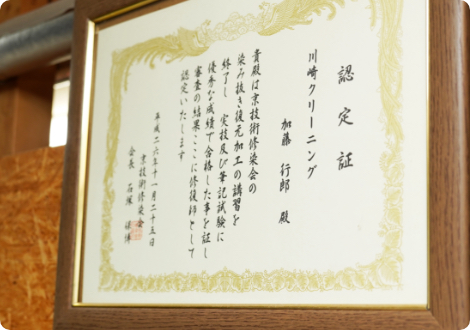 認定証
川崎クリーニング
加藤 行郎 殿
貴殿は京技術修染会の
染み抜き復元加工の講習を
終了し 実技及び筆記試験に
優秀な成績で合格した事を証し
審査の結果ここに修復師として
認定いたします
平成二六年十一月二十五日
京技術修染会
会長 石